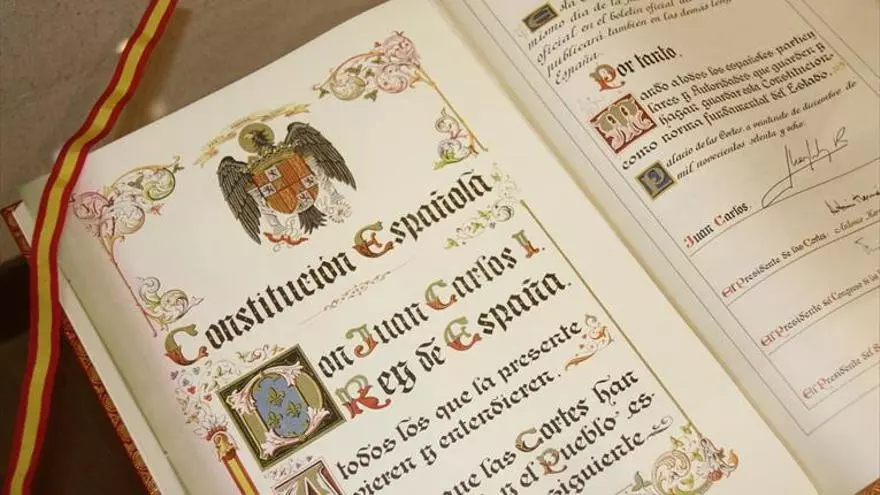 Constitución Española
Don Juan Carlos I.
Rey de España.
A todos los que la presente
vieren y entendieren.
que las Cortes han
y el Pueblo es-
siguiente
mismo día de la
oficial en el boletín oficial de
publicará también en las demás leng
España.
Por tanto,
Mando a todos los españoles particu-
lares y Autoridades que guarden y
hagan guardar esta Constitución
como norma fundamental del Estado.
Palacio de las Cortes, a veintiuno de diciembre de
mil novecientos setenta y ocho.
Juan Carlos.
El Presidente de las Cortes.
El Presidente del Congreso de los
El Presidente del S